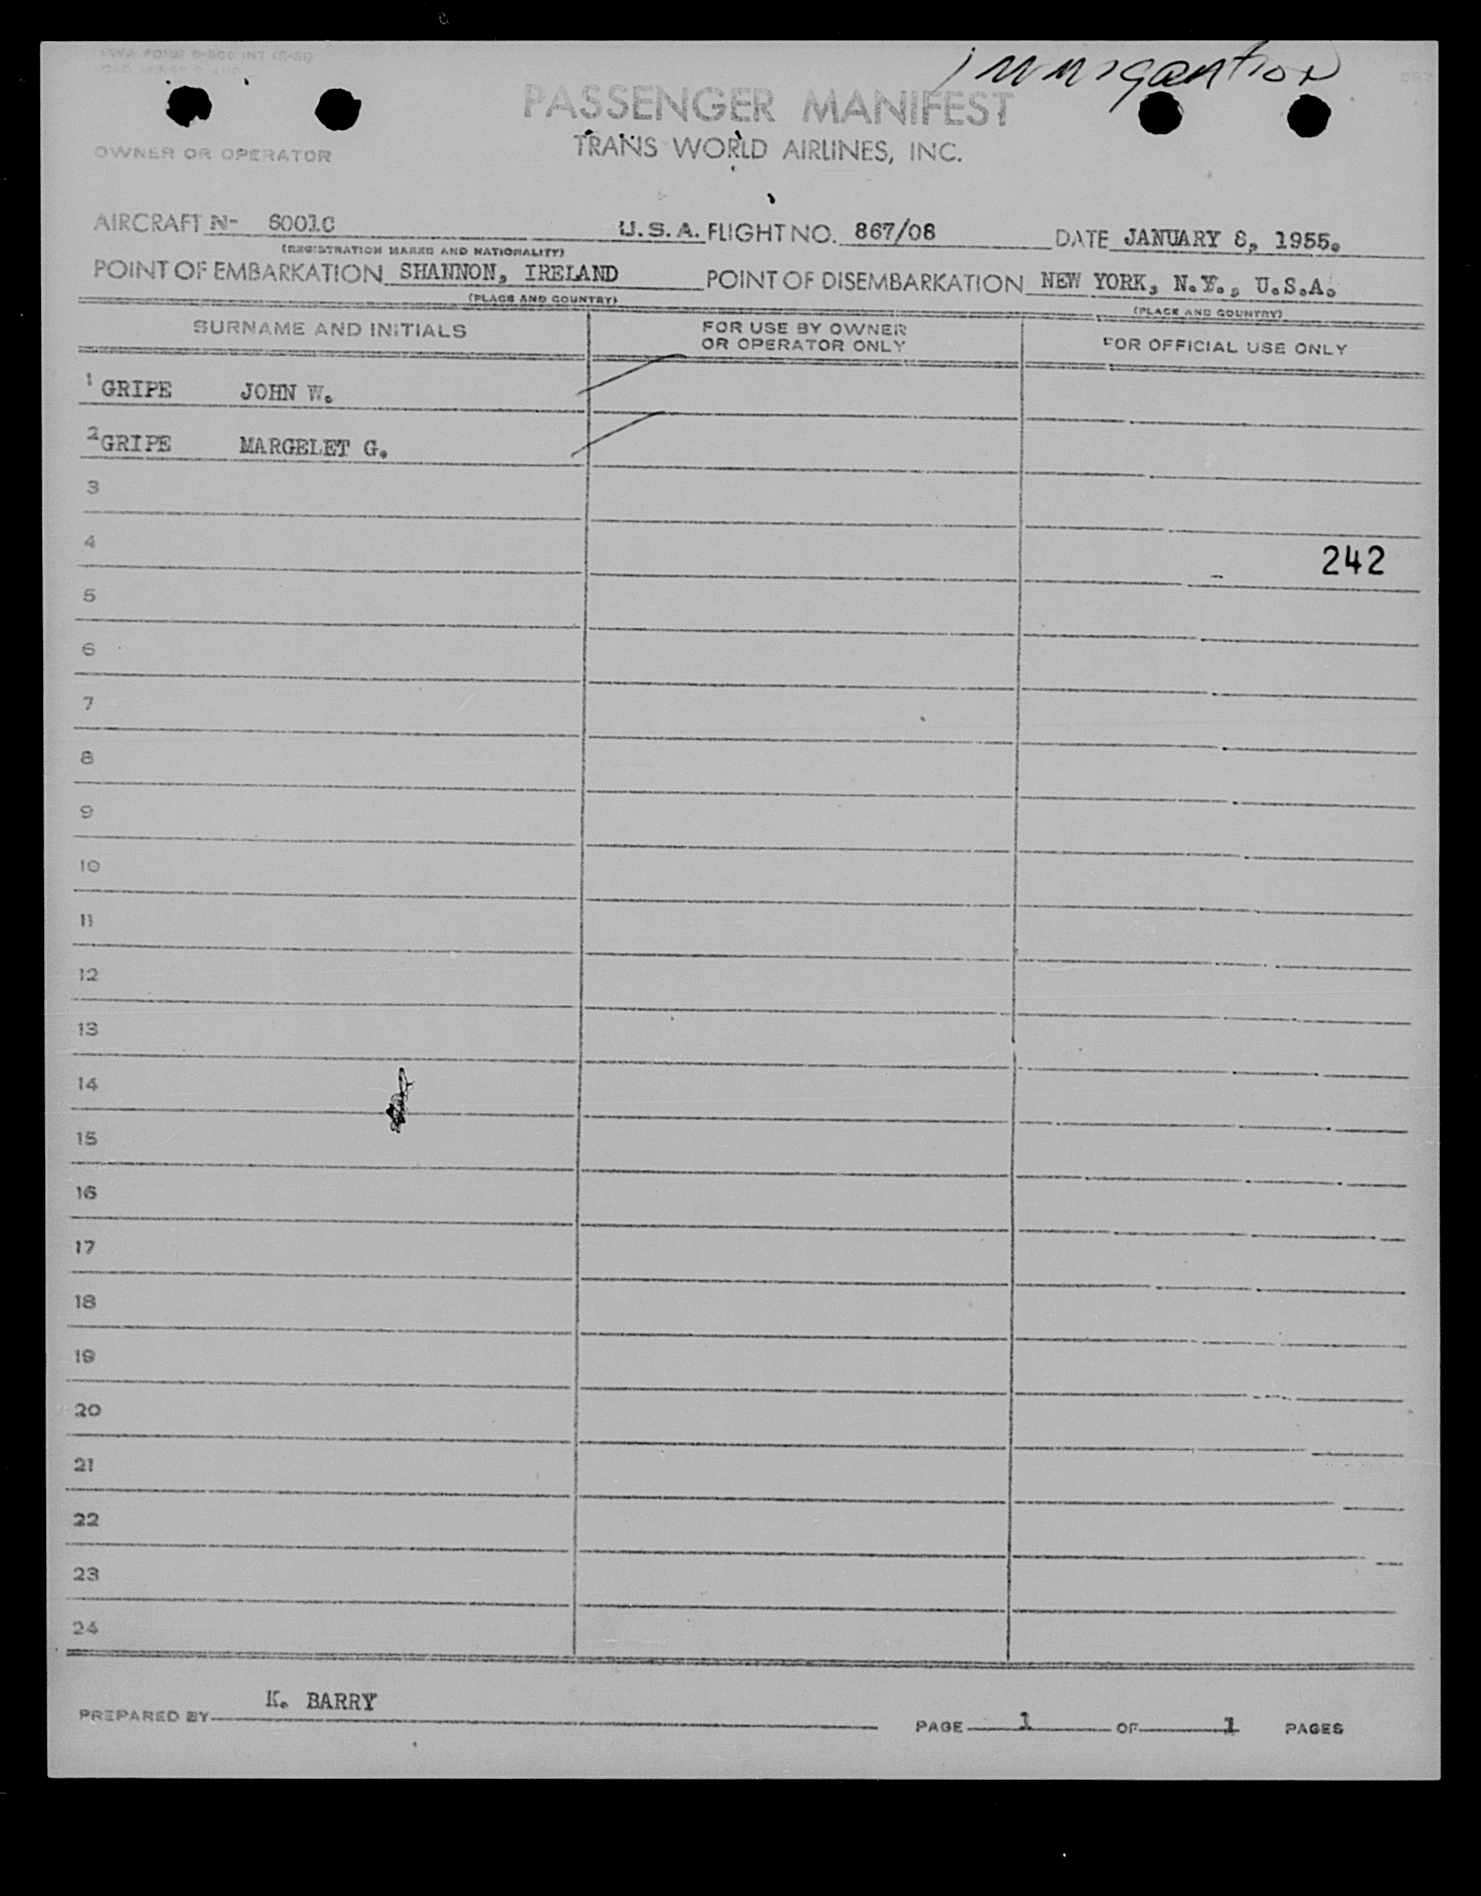 Immigration
PASSENGER MANIFEST
TRANS WORLD AIRLINES, INC.
OWNER OR OPERATOR
AIRCRAFT N- 6001C U.S.A. FLIGHT NO. 867/08 DATE JANUARY 8, 1955.
(REGISTRATION MARKS AND NATIONALITY)
POINT OF EMBARKATION SHANNON, IRELAND POINT OF DISEMBARKATION NEW YORK, N.Y., U.S.A.
(PLACE AND COUNTRY) (PLACE AND COUNTRY)
SURNAME AND INITIALS FOR USE BY OWNER OR OPERATOR ONLY FOR OFFICIAL USE ONLY
1 GRIPE JOHN W.
2 GRIPE MARGELET G.
3
4 242
5
6
7
8
9
10
11
12
13
14
15
16
17
18
19
20
21
22
23
24
PREPARED BY K. BARRY PAGE 1 OF 1 PAGES